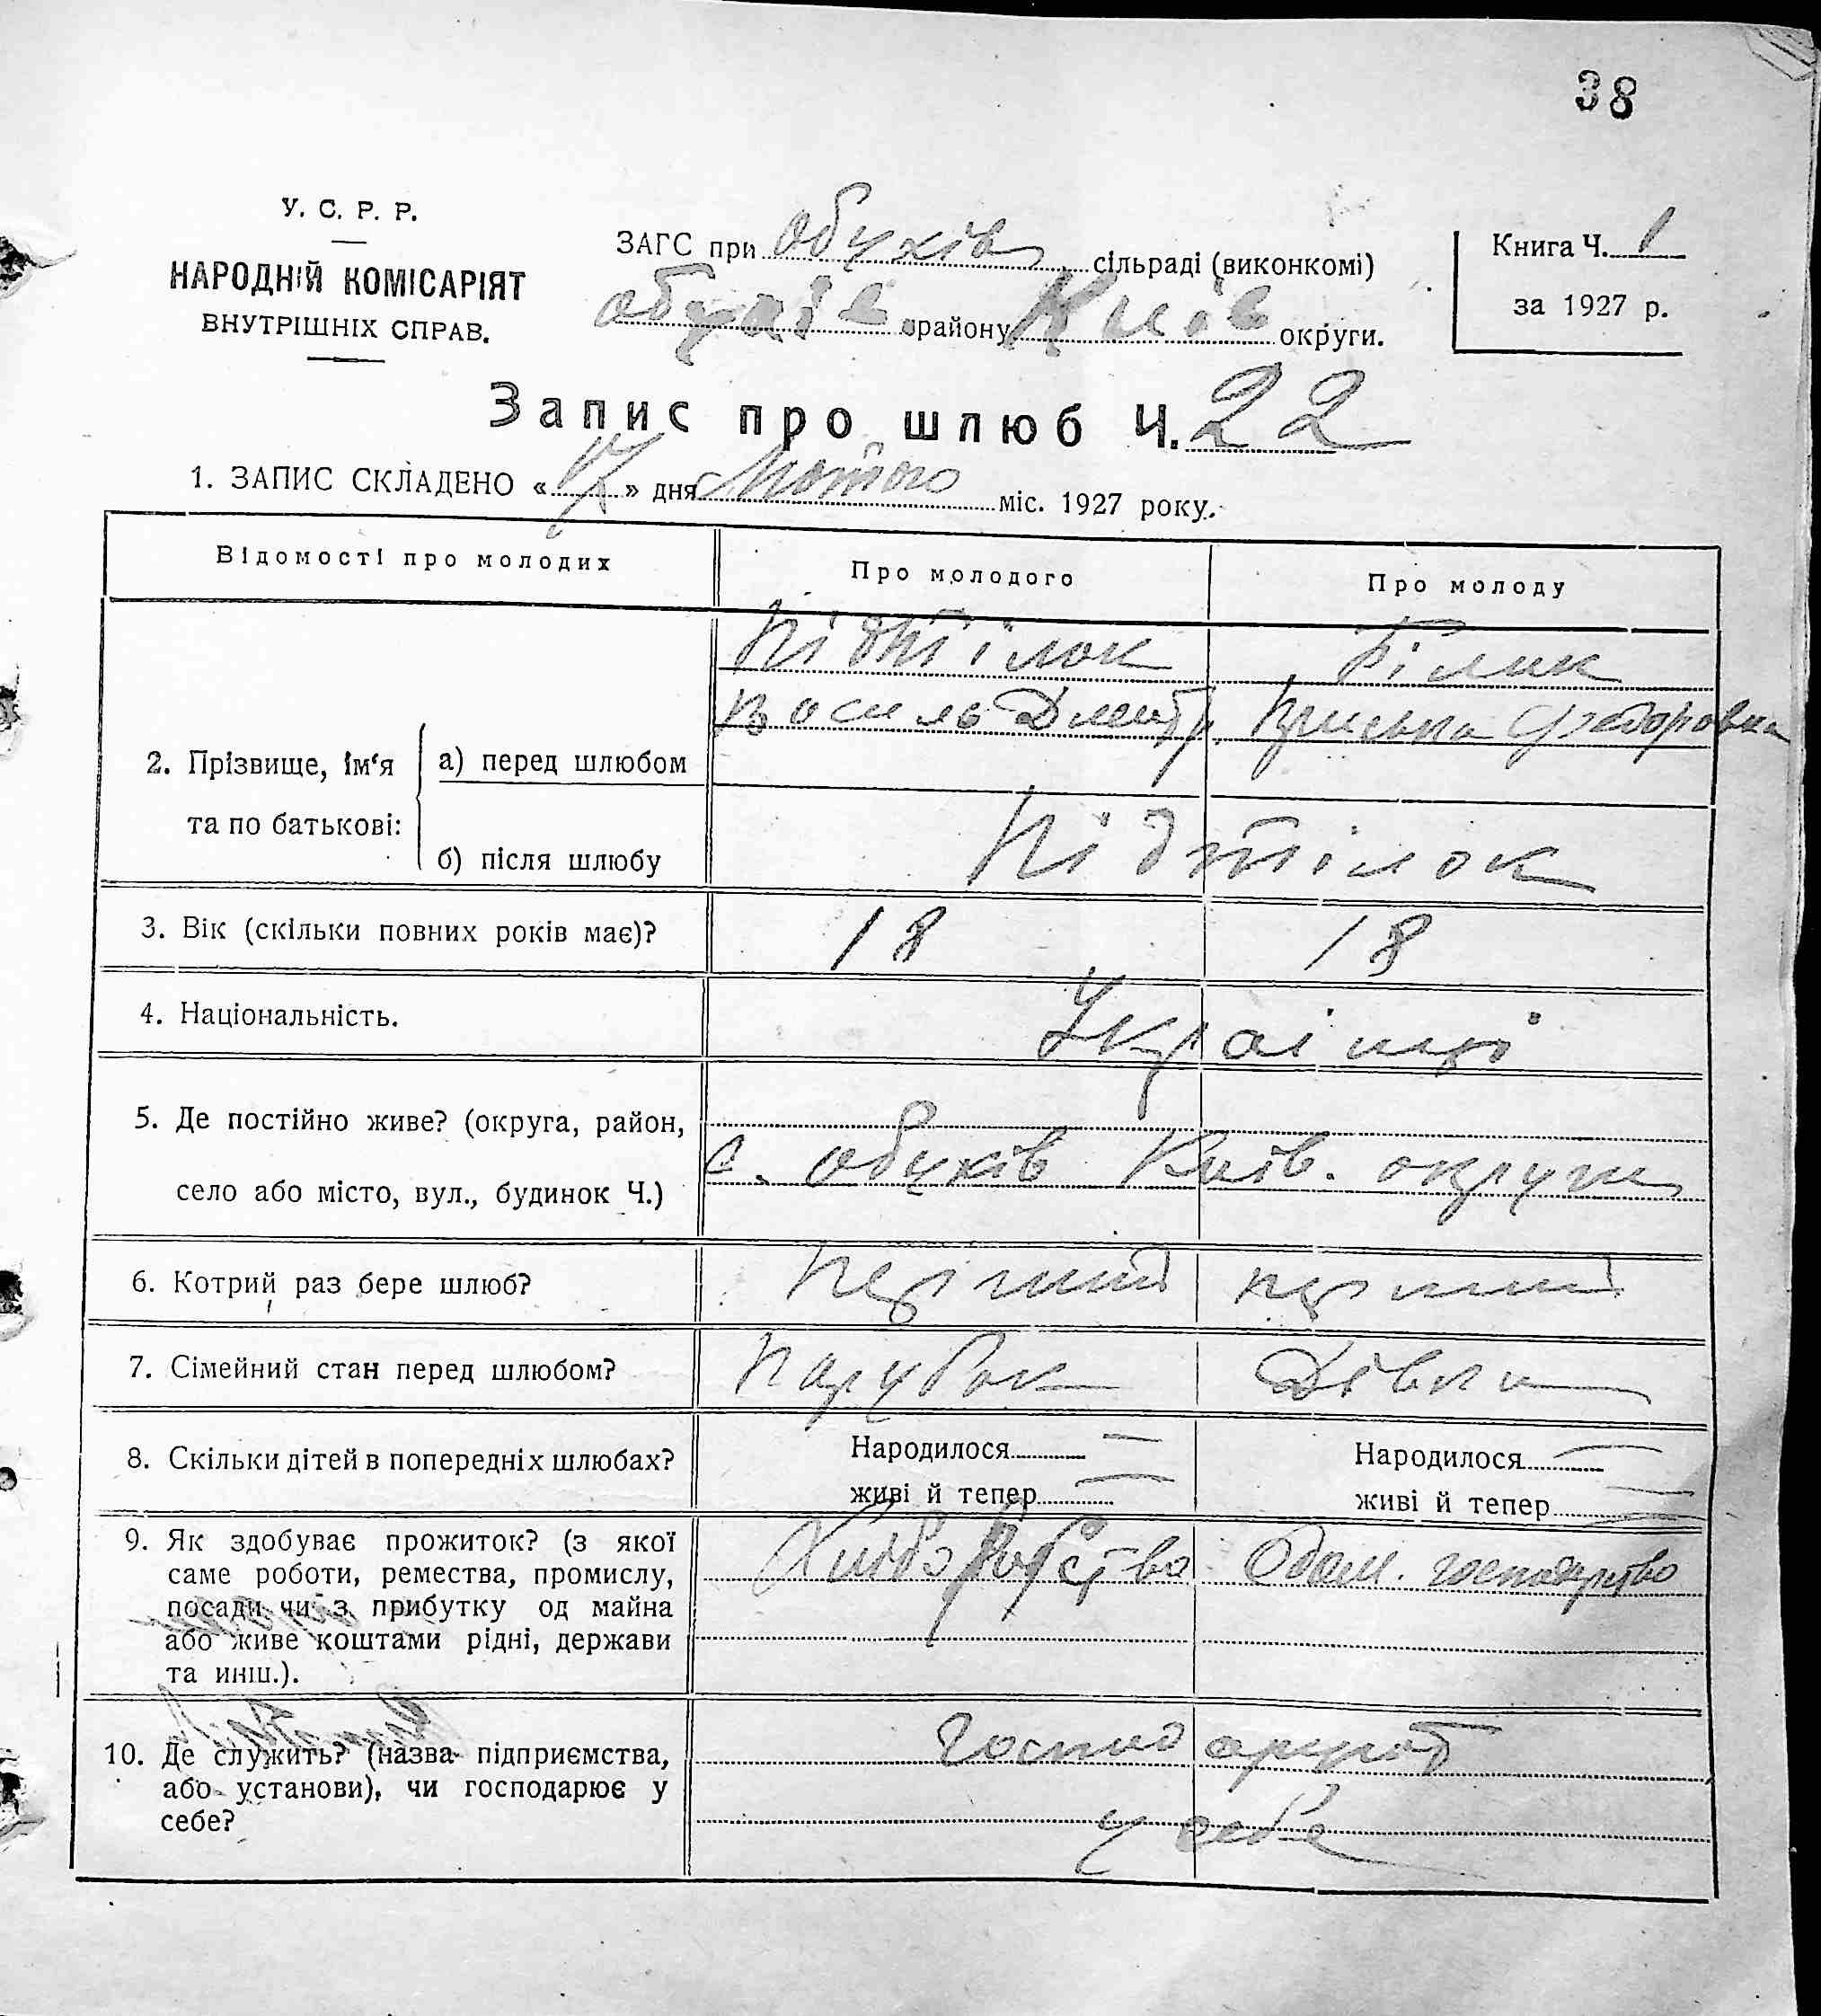 38
У. С. Р. Р.
НАРОДНІЙ КОМІСАРІЯТ
ВНУТРІШНІХ СПРАВ.
ЗАГС при Обухів сільраді (виконкомі)
Обухів району Київ округи.
Книга Ч. 1
за 1927 р.
Запис про шлюб Ч. 22
1. ЗАПИС СКЛАДЕНО « 17 » дня Лютого міс. 1927 року.
Відомості про молодих Про молодого Про молоду
Підтілок Білик
Василь Дмитр. Приська Федоровна
2. Прізвище, ім'я та по батькові:
а) перед шлюбом
б) після шлюбу Підтілок
3. Вік (скільки повних років має)? 18 18
4. Національність. Українці
5. Де постійно живе? (округа, район,
село або місто, вул., будинок Ч.) с. Обухів Київ. округи
6. Котрий раз бере шлюб? Перший перший
7. Сімейний стан перед шлюбом? Парубок Дівка
8. Скільки дітей в попередніх шлюбах? Народилося — Народилося —
живі й тепер — живі й тепер —
9. Як здобуває прожиток? (з якої Хліборобство Дом. господарство
саме роботи, ремества, промислу,
посади чи з прибутку од майна
або живе коштами рідні, держави
та инш.).
10. Де служить? (назва підприємства, Господарюют
або установи), чи господарює у у себе
себе?